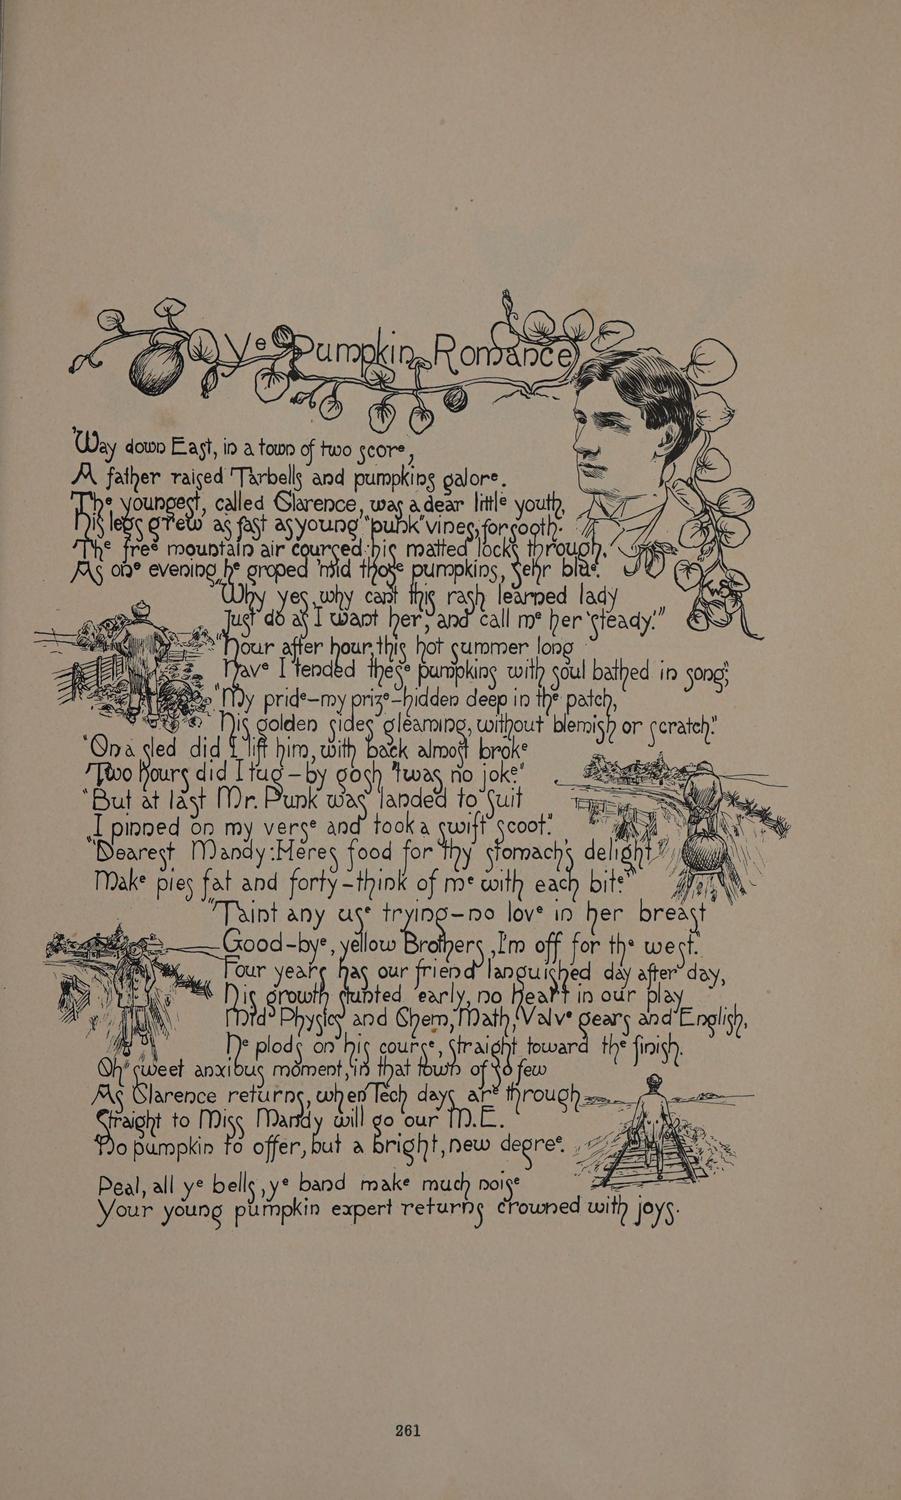 Ye Pumpkin Romance
'Way down East, in a town of two score,
A father raised Tarbells and pumpkins galore.
The youngest, called Clarence, was a dear little youth,
His legs grew as fast as young "punk" vines, forsooth.
The free mountain air coursed his matted locks through,
As one evening he groped 'mid those pumpkins, sehr blue.
"Why yes, why cant this rash learned lady
Just do as I want her, and call me her 'steady.'"
"Hour after hour, this hot summer long
Have I tended these pumpkins with soul bathed in song;
"My pride—my prize—hidden deep in the patch,
His golden sides gleaming, without blemish or scratch."
"On a sled did I lift him, with back almost broke
Two hours did I tug—by gosh 'twas no joke."
"But at last Mr. Punk was landed to suit
I pinned on my verse and took a swift scoot."
"Dearest Mandy: Heres food for thy stomach's delight"
Make pies fat and forty—think of me with each bite"
"Taint any use trying—no love in her breast
Good-bye, yellow Brothers, I'm off for the west."
Four years has our friend languished day after day,
His growth stunted early, no heart in our play
Mid Physics and Chem, Math, Valve gears and English,
He plods on his course, straight toward the finish.
Oh sweet anxious moment, in that town of so few
As Clarence returns, when Tech days are through
Straight to Miss Mandy will go our M.E.
No pumpkin to offer, but a bright, new degree.
Peal, all ye bells, ye band make much noise
Your young pumpkin expert returns crowned with joys.
261